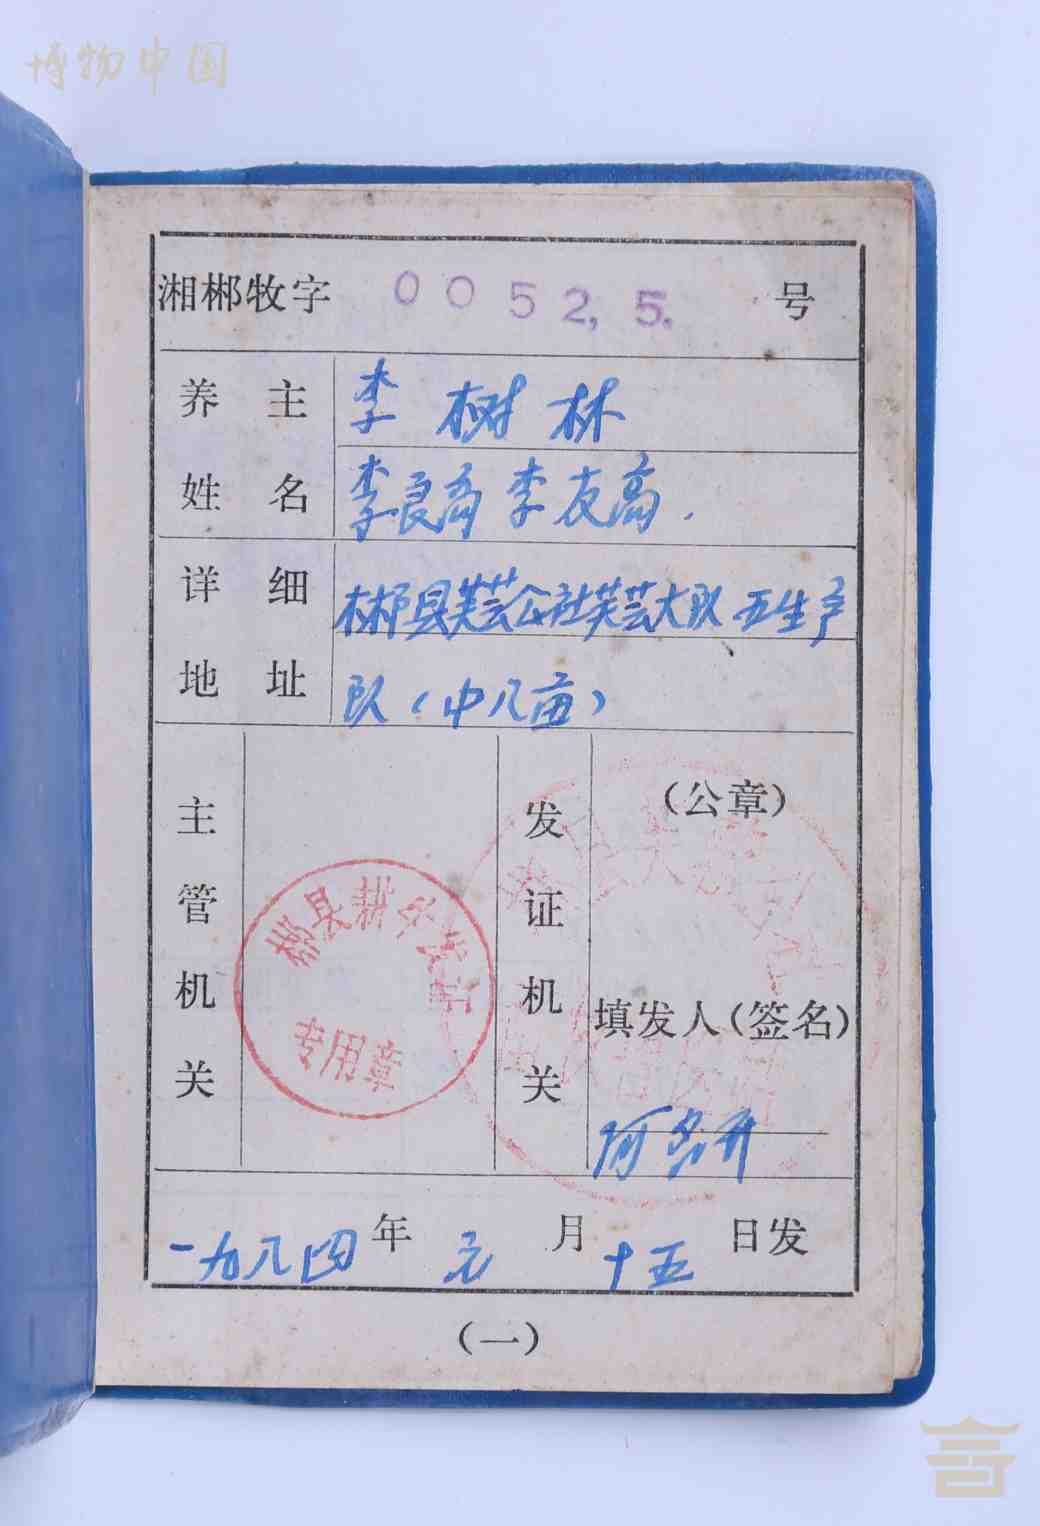 博物中国
湘郴牧字 00525. 号
养主姓名
李树林
李良高 李友高.
详细地址
郴县芙芸公社芙芸大队五生产
队（中八亩）
主管机关
郴县耕牛
专用章
发证机关
（公章）
填发人（签名）
一九八四年元月十五日发
（一）